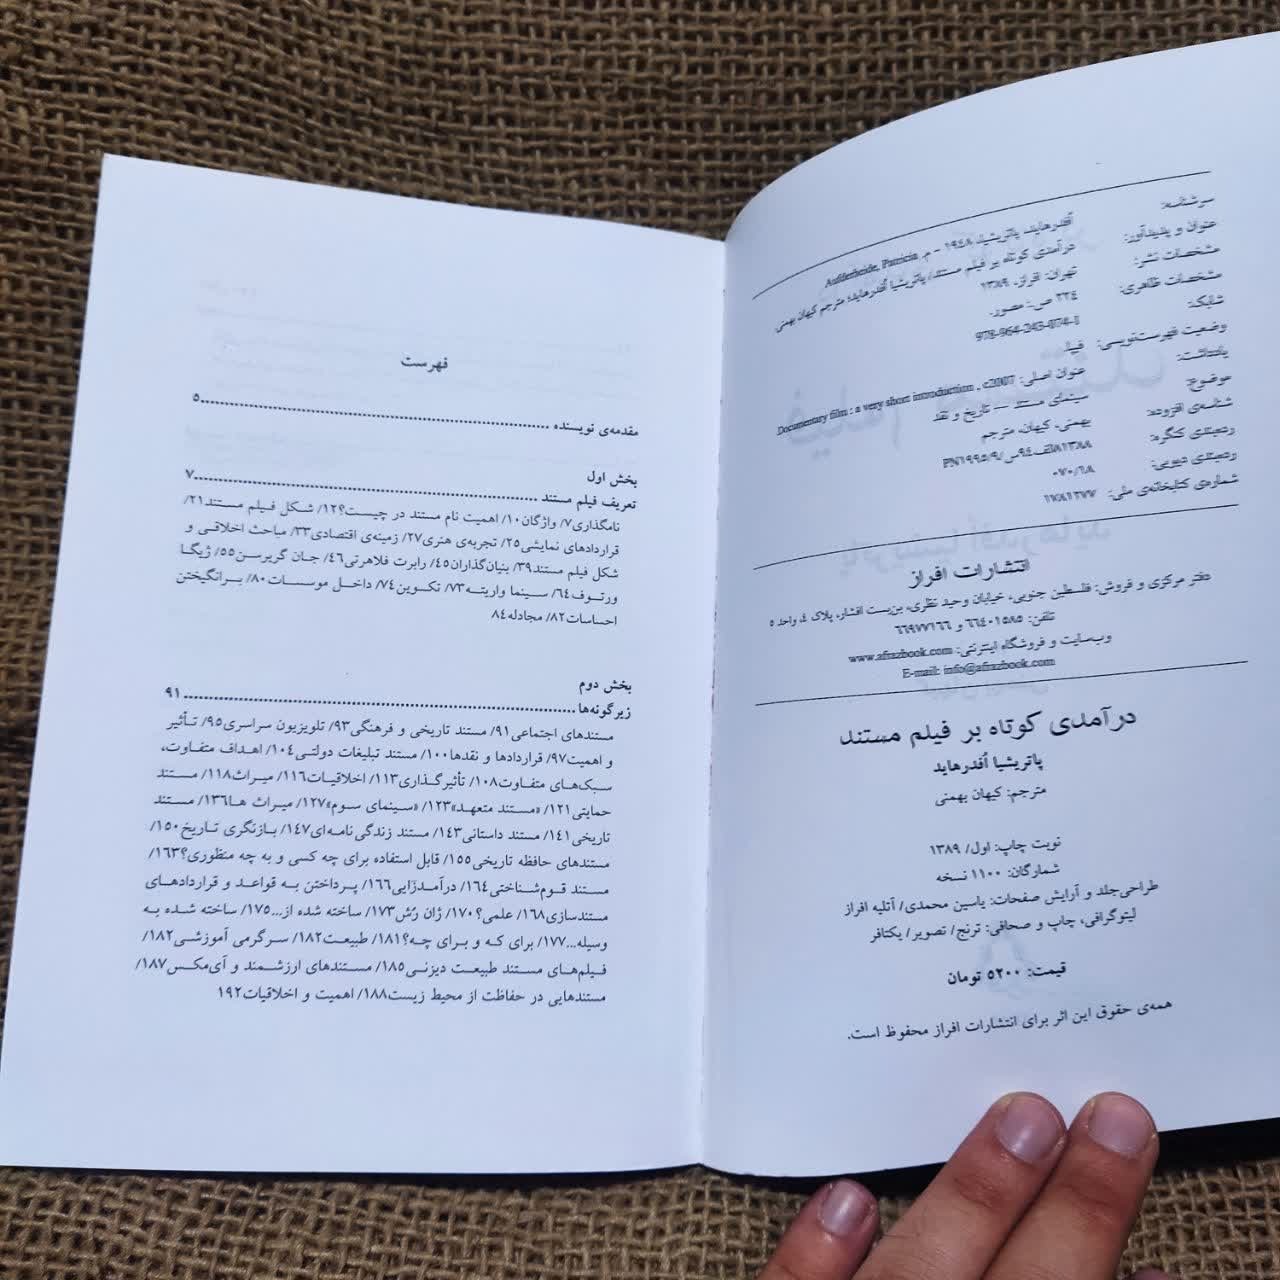 سرشناسه: اُفدرهاید، پاتریشیا، ۱۹۴۸ – م. Aufderheide, Patricia
عنوان و پدیدآور: درآمدی کوتاه بر فیلم مستند/ پاتریشیا اُفدرهاید؛ مترجم کیهان بهمنی.
مشخصات نشر: تهران: افراز، ۱۳۸۹
مشخصات ظاهری: ۲۲۴ ص.: مصور.
شابک: 978-964-243-074-1
وضعیت فهرست‌نویسی: فیپا
یادداشت: عنوان اصلی: Documentary film : a very short introduction , c2007.
موضوع: سینمای مستند — تاریخ و نقد
شناسه‌ی افزوده: بهمنی، کیهان، مترجم
رده‌بندی کنگره: ۱۳۸۸ ۸الف۹۴س/۹/PN۱۹۹۵
رده‌بندی دیویی: ۰۷۰/۱۸
شماره‌ی کتابخانه‌ی ملی: ۱۷۸۱۳۷۷
انتشارات افراز
دفتر مرکزی و فروش: فلسطین جنوبی، خیابان وحید نظری، بن‌بست افشار، پلاک ۴، واحد ۵
تلفن: ۶۶۴۰۱۵۸۵ و ۶۶۹۷۷۱۶۶
وب‌سایت و فروشگاه اینترنتی: www.afrazbook.com
E-mail: info@afrazbook.com
درآمدی کوتاه بر فیلم مستند
پاتریشیا اُفدرهاید
مترجم: کیهان بهمنی
نوبت چاپ: اول/ ۱۳۸۹
شمارگان: ۱۱۰۰ نسخه
طراحی‌جلد و آرایش صفحات: یاسین محمدی/ آتلیه افراز
لیتوگرافی، چاپ و صحافی: ترنج/ تصویر/ یکتافر
قیمت: ۵۲۰۰ تومان
همه‌ی حقوق این اثر برای انتشارات افراز محفوظ است.
فهرست
مقدمه‌ی نویسنده ........ ۵
بخش اول
تعریف فیلم مستند ........ ۷
نامگذاری۷/ واژگان۱۰/ اهمیت نام مستند در چیست؟۱۲/ شکل فیلم مستند۲۱/
قراردادهای نمایشی۲۵/ تجربه‌ی هنری۲۷/ زمینه‌ی اقتصادی۳۳/ مباحث اخلاقی و
شکل فیلم مستند۳۹/ بنیان‌گذاران۴۵/ رابرت فلاهرتی۴۶/ جان گریرسن۵۵/ ژیگا
ورتوف۶۴/ سینما واریته۷۳/ تکوین۷۴/ داخل موسسات۸۰/ برانگیختن
احساسات۸۲/ مجادله۸۴
بخش دوم
زیرگونه‌ها ........ ۹۱
مستندهای اجتماعی۹۱/ مستند تاریخی و فرهنگی۹۳/ تلویزیون سراسری۹۵/ تأثیر
و اهمیت۹۷/ قراردادها و نقدها۱۰۰/ مستند تبلیغات دولتی۱۰۴/ اهداف متفاوت،
سبک‌های متفاوت۱۰۸/ تأثیرگذاری۱۱۳/ اخلاقیات۱۱۶/ میراث۱۱۸/ مستند
حمایتی۱۲۱/ «مستند متعهد»۱۲۳/ «سینمای سوم»۱۲۷/ میراث ها۱۳۶/ مستند
تاریخی۱۴۱/ مستند داستانی۱۴۳/ مستند زندگی‌نامه‌ای۱۴۷/ بازنگری تاریخ۱۵۰/
مستندهای حافظه تاریخی۱۵۵/ قابل استفاده برای چه کسی و به چه منظوری؟۱۶۳/
مستند قوم‌شناختی۱۶۴/ درآمدزایی۱۶۶/ پرداختن به قواعد و قراردادهای
مستندسازی۱۶۸/ علمی؟۱۷۰/ ژان رُش۱۷۳/ ساخته شده از...۱۷۵/ ساخته شده به
وسیله...۱۷۷/ برای که و برای چه؟۱۸۱/ طبیعت۱۸۲/ سرگرمی آموزشی۱۸۲/
فیلم‌های مستند طبیعت دیزنی۱۸۵/ مستندهای ارزشمند و آی‌مکس۱۸۷/
مستندهایی در حفاظت از محیط زیست۱۸۸/ اهمیت و اخلاقیات۱۹۲